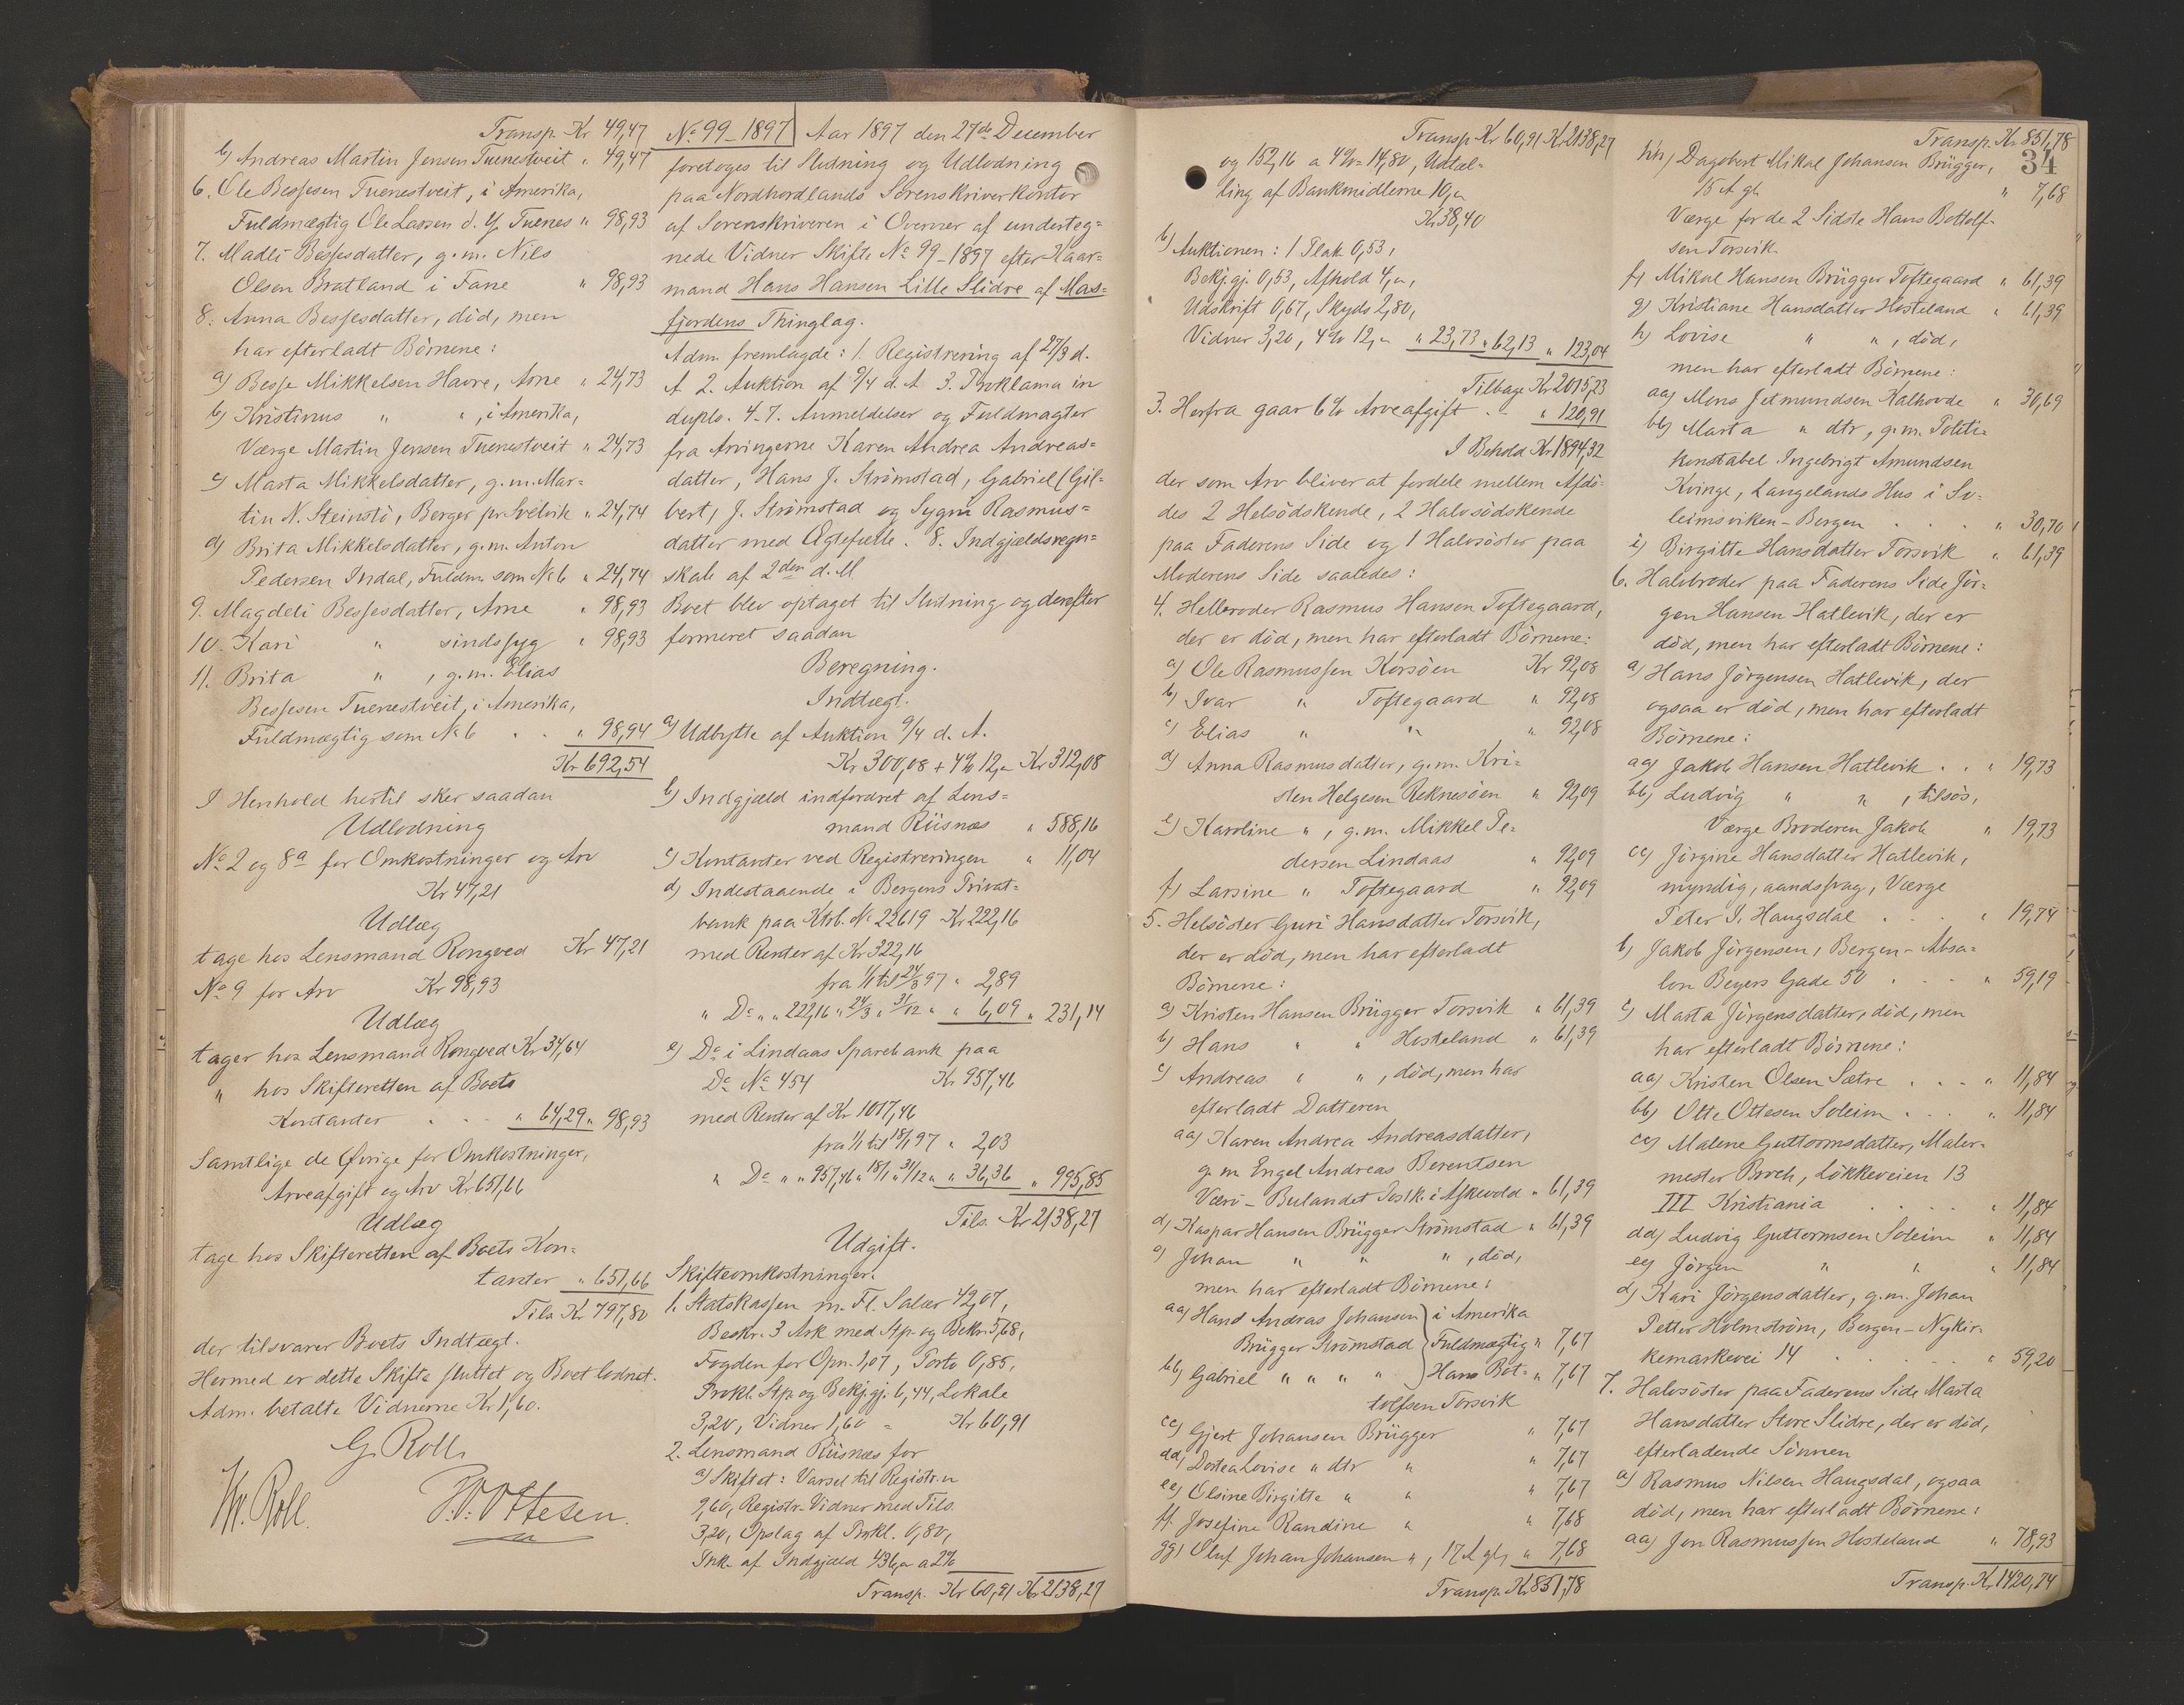 Transp. Kr 49,47
b) Andreas Martin Jensen Tuenestveit " 49,47
6. Ole Bessesen Tuenestveit, i Amerika,
Fuldmægtig Ole Lassen d. Y. Tuenes " 98,93
7. Madli Bessesdatter, g. m. Nils
Olsen Bratland i Fane " 98,93
8. Anna Bessesdatter, död, men
har efterladt Börnene:
a) Besse Mikkelsen Havre, Arne " 24,73
b) Kristinus " ", i Amerika,
Værge Martin Jensen Tuenestveit " 24,73
c) Marta Mikkelsdatter, g. m. Mar=
tin N. Steinstö, Berger pr Svelvik " 24,74
d) Brita Mikkelsdatter, g. m. Anton
Pedersen Indal, Fuldm. som № 6 " 24,74
9. Magdeli Bessesdatter, Arne " 98,93
10. Kari " sindssyg " 98,93
11. Brita ", g. m. Elias
Bessesen Tuenestveit, i Amerika,
Fuldmægtig som № 6 . . " 98,94
Kr 692,54
I Henhold hertil sker saadan
Udlodning
№ 2 og 8a for Omkostninger og Arv
Kr 47,21
Udlæg
tage hos Lensmand Rongved Kr 47,21
№ 9 for Arv Kr 98,93
Udlæg
tager hos Lensmand Rongved Kr 34,64
" hos Skifteretten af Boets
Kontanter . . . " 64,29 " 98,93
Samtlige de Övrige for Omkostninger,
Arveafgift og Arv Kr 651,66
Udlæg
tage hos Skifteretten af Boets Kon=
tanter " 651,66
Tils. Kr 797,80
der tilsvarer Boets Indtægt.
Hermed er dette Skifte sluttet og Boet lodnet.
Adm. betalte Vidnerne Kr 1,60.
G. Roll.
W. Roll. P. V. Ottesen.
№ 99-1897 Aar 1897 den 27de December
foretoges til Slutning og Udlodning
paa Nordhordlands Sorenskriverkontor
af Sorenskriveren i Overvær af underteg=
nede Vidner Skifte № 99-1897 efter Kaar=
mand Hans Hansen Lille Slidre af Mas=
fjordens Thinglag.
Adm. fremlagde: 1. Registrering af 27/3 d.
A. 2. Auktion af 9/4 d. A. 3. Proklama in
duplo. 4-7. Anmeldelser og Fuldmagter
fra Arvingerne Karen Andrea Andreas=
datter, Hans J. Strömstad, Gabriel (Gil=
bert) J. Strömstad og Sygni Rasmus=
datter med Ægtefælle. 8. Indgjældsregn=
skab af 2den d. M
Boet blev optaget til Slutning og derefter
formeret saadan
Beregning.
Indtægt.
a) Udbytte af Auktion 9/4 d. A.
Kr 300,08 + 4% 12,- Kr 312,08
b) Indgjæld indfordret af Lens=
mand Riisnæs " 588,16
c) Kontanter ved Registreringen " 11,04
d) Indestaaende i Bergens Privat=
bank paa Ktrb. № 22619 Kr 222,16
med Renter af Kr 322,16
fra 1/1 til 24/3 97 " 2,89
" Do " " 222,16 " 24/3 " 31/12 " " 6,09 " 231,14
e) Do i Lindaas Sparebank paa
Do № 454 Kr 957,46
med Renter af Kr 1017,46
fra 1/1 til 18/1 97 " 2,03
" Do " " 957,46 " 18/1 " 31/12 " " 36,36 " 995,85
Tils. Kr 2138,27
Udgift.
Skifteomkostninger.
1. Statskassen m. Fl. Salær 42,07,
Beskr. 3 Ark med Stp. og Bekr. 5,68,
Fogden for Opn. 1,07, Porto 0,85,
Prokl. Stp. og Bekj.gj. 6,44, Lokale
3,20, Vidner 1,60 = Kr 60,91
2. Lensmand Riisnæs for
a) Skiftet: Varsel til Registr.n
9,60, Registr. Vidner med Tils.
3,20, Opslag af Prokl. 0,80,
Ink. af Indgjæld 436,- a 2%
Transp. Kr 60,91 Kr 2138,27
Transp. Kr 60,91 Kr 2138,27
og 152,16 a 4% = 14,80, Udtæl=
ling af Bankmidlerne 10,-
Kr 38,40
b) Auktionen: 1 Plak. 0,53,
Bekj.gj. 0,53, Afhold 4,-,
Udskrift 0,67, Skyds 2,80,
Vidner 3,20, 4% 12,- " 23,73 " 62,13 " 123,04
Tilbage Kr 2015,23
3. Herfra gaar 6% Arveafgift . - " 120,91
I Behold Kr 1894,32
der som Arv bliver at fordele mellem Afdö=
des 2 Helsödskende, 2 Halvsödskende
paa Faderens Side og 1 Halvsöster paa
Moderens Side saaledes:
4. Helbroder Rasmus Hansen Toftegaard,
der er död, men har efterladt Börnene:
a) Ole Rasmussen Korsöen Kr 92,08
b) Ivar " Toftegaard " 92,08
c) Elias " " " 92,08
d) Anna Rasmusdatter, g. m. Kri=
sten Helgesen Reknesöen " 92,09
e) Karoline ", g. m. Mikkel Pe=
dersen Lindaas " 92,09
f) Larsine " Toftegaard " 92,09
5. Helsöster Guri Hansdatter Torsvik,
der er död, men har efterladt
Börnene:
a) Kristen Hansen Brügger Torsvik " 61,39
b) Hans " " Hosteland " 61,39
c) Andreas " ", död, men har
efterladt Datteren
aa) Karen Andrea Andreasdatter,
g. m. Engel Andreas Berentsen
Værö-Bulandet Postk. i Askevold " 61,39
d) Kaspar Hansen Brügger Strömstad " 61,39
e) Johan " " ", död,
men har efterladt Börnene:
aa) Hans Andreas Johansen i Amerika
Brügger Strömstad Fuldmægtig " 7,67
bb) Gabriel " " " " Hans Bot= " 7,67
tolfsen Torsvik
cc) Gjert Johansen Brügger " 7,67
dd) Dortea Lovise " dtr " " 7,67
ee) Olsine Birgitte " " " 7,67
ff. Josefine Randine " " 7,68
gg) Oluf Johan Johansen ", 17 A. gl, " 7,68
Transp. Kr 851,78
Transp. Kr 851,78
34
hh) Dagobert Mikal Johansen Brügger,
15 A. gl. " 7,68
Værge for de 2 Sidste Hans Bottolf=
sen Torsvik.
f) Mikal Hansen Brügger Toftegaard " 61,39
g) Kristiane Hansdatter Hosteland " 61,39
h) Lovise " ", död,
men har efterladt Börnene:
aa) Mons Jetmundsen Kalhovde " 30,69
bb) Marta " dtr, g. m. Politi=
konstabel Ingebrigt Amundsen
Kvinge, Langelands Hus i So=
leimsviken-Bergen . . . " 30,70
i) Birgitte Hansdatter Torsvik " 61,39
6. Halvbroder paa Faderens Side Jör=
gen Hansen Hatlevik, der er
död, men har efterladt Börnene:
a) Hans Jörgensen Hatlevik, der
ogsaa er död, men har efterladt
Börnene:
aa) Jakob Hansen Hatlevik . . " 19,73
bb) Ludvig " ", tilsös,
Værge Broderen Jakob " 19,73
cc) Jörgine Hansdatter Hatlevik,
myndig, aandssvag, Værge
Peter I. Haugsdal . . . " 19,74
b) Jakob Jörgensen, Bergen - Absa=
lon Beyers Gade 50 . . . " 59,19
c) Marta Jörgensdatter, död, men
har efterladt Börnene:
aa) Kristen Olsen Sætre . . . " 11,84
bb) Otte Ottesen Soleim . . . " 11,84
cc) Malene Guttormsdatter, Maler=
mester Broch, Lökkeveien 13
III Kristiania . . . . " 11,84
dd) Ludvig Guttormsen Soleim " 11,84
ee) Jörgen " " " 11,84
d) Kari Jörgensdatter, g. m. Johan
Petter Holmström, Bergen-Nykir=
kemarkevei 14 . . . . " 59,20
7. Halvsöster paa Faderens Side Marta
Hansdatter Store Slidre, der er död,
efterladende Sönnen
a) Rasmus Nilsen Haugsdal, ogsaa
död, men har efterladt Börnene:
aa) Jon Rasmussen Hosteland " 78,93
Transp. Kr 1420,74